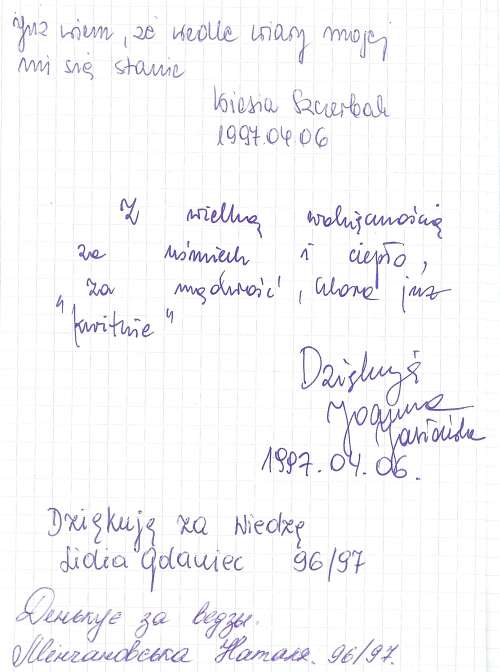 Już wiem, że wedle wiary mojej
mi się stanie
Wiesia Szczerbak
1997.04.06
Z wielką wdzięcznością
za uśmiech i ciepło,
za mądrość, która już
"kwitnie"
Dziękuję
1997.04.06.
Dziękuję za wiedzę
Lidia Gdaniec 96/97
Денькує за ведзы.
Мінчановська Наталя. 96/97.